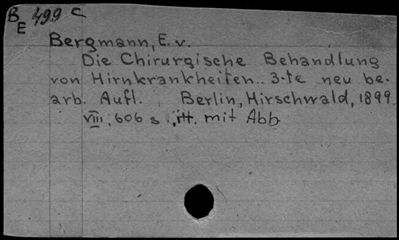 B 499 c
E
Bergmann, E. v.
Die Chirurgische Behandlung
von Hirnkrankheiten.. 3-te neu be-
arb. Aufl. Berlin, Hirschwald, 1899.
VIII, 606 s. mit Abb